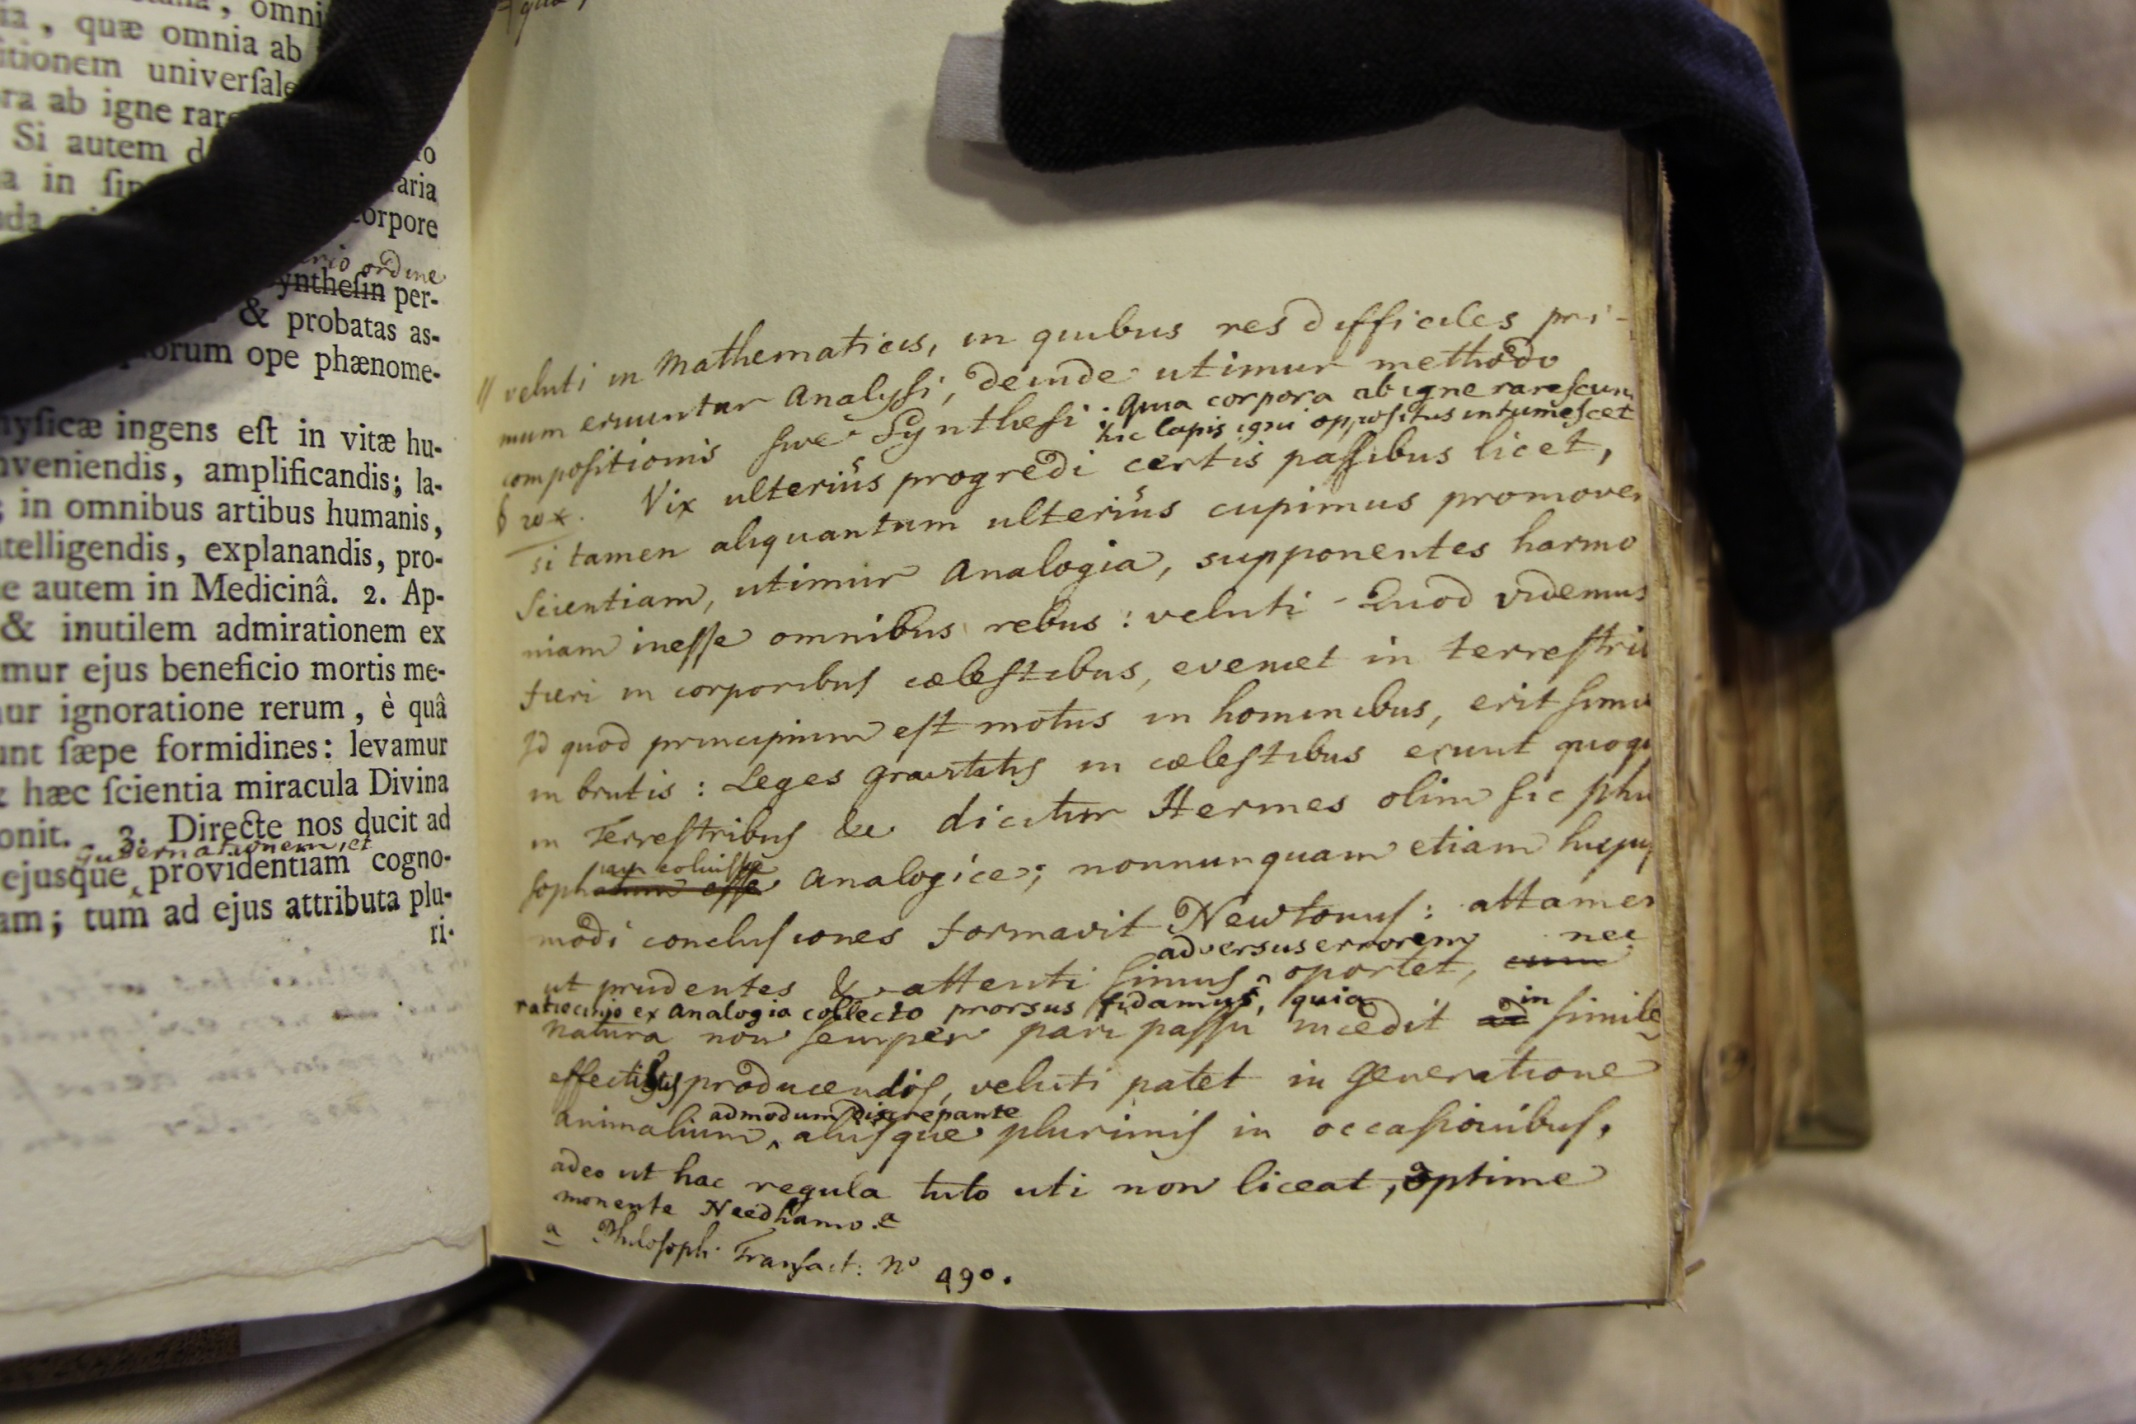 omni
quæ omnia ab
itionem univerſale
ra ab igne rare
Si autem d
ro
a in ſim
aria
corpore
nio ordine
yntheſin per-
& probatas as-
orum ope phænome-
hyſicæ ingens eſt in vitæ hu-
nveniendis, amplificandis; la-
; in omnibus artibus humanis,
ntelligendis, explanandis, pro-
e autem in Medicinâ. 2. Ap-
& inutilem admirationem ex
mur ejus beneficio mortis me-
ur ignoratione rerum, è quâ
unt ſæpe formidines: levamur
& hæc ſcientia miracula Divina
onit. 3. Directe nos ducit ad
gubernationem, et
ejusque ‸ providentiam cogno-
am; tum ad ejus attributa plu-
ri-
// veluti in Mathematicis, in quibus res difficiles pri-
mum eruuntur Analyſi, deinde utimur methodo
compoſitionis ſive Syntheſi. Quia corpora ab igne rareſcun
hic lapis igni oppoſitus intumeſcet
Vix ulteriùs progredi certis paſſibus licet,
si tamen aliquantum ulteriùs cupimus promover
Scientiam, utimur Analogia, supponentes harmo
niam ineſſe omnibus rebus: veluti - Quod videmus
fieri in corporibus cæleſtibus, eveniet in terreſtri
Id quod principium eſt motus in hominibus, erit ſimi
in brutis: Leges gravitatis in cæleſtibus erunt quoqu
in Terreſtribus &c dicitur Hermes olim ſic phi
ſophatum eſſe Analogice; nonnunquam etiam hujuſ
modi concluſiones formavit Newtonus: attamen
adversus errorem nec
ut prudentes & attenti ſimus ‸ oportet, cum
ratiocinio ex Analogia collecto prorsus fidamus, quia
in
natura non ſemper pari paſſu incedit ad ſimile
effectibus producendis, veluti patet in Generatione
admodum discrepante
animalium ‸ aliiſque plurimis in occaſionibus,
adeo ut hac regula tuto uti non liceat, optime
monente Needhamo. a
a Philoſoph. Tranſact: No 490.